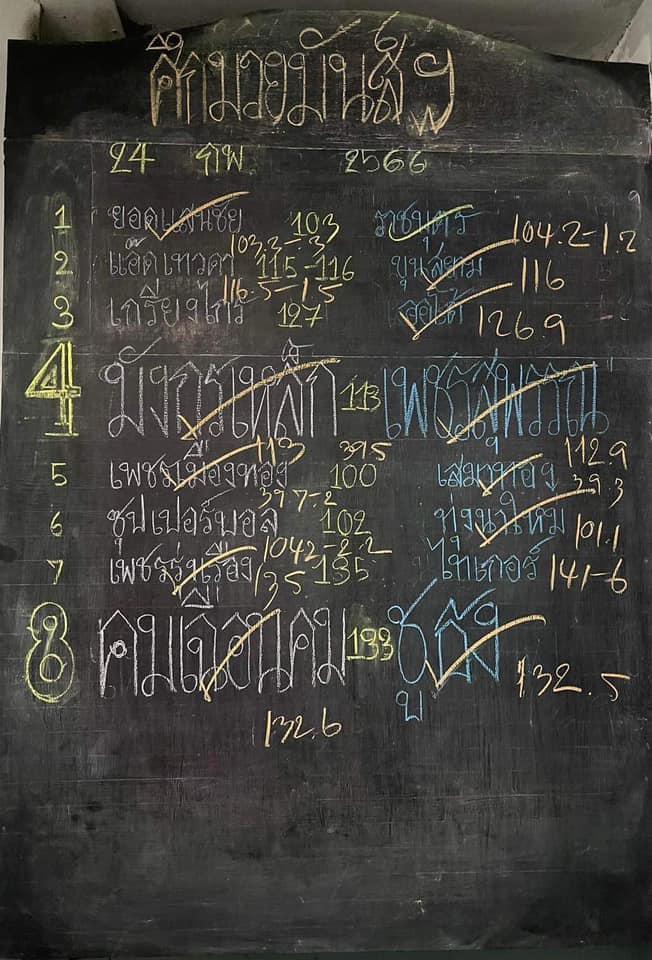 ศึกมวยมันส์ๆ
24 กพ 2566
1 ยอดแสนชัย 103 ราชบุตร 104.2-1.2
103.3-.3
2 แอ๊ดเทวดา 115-116 ขุนสยาม 116
116.5-1.5
3 เกรียงไกร 127 126.9
4 มังกรเหล็ก 113 เพชรสุพรรณ
113 112.9
5 เพชรเมืองทอง 100 เสมาทอง
6 ซุปเปอร์บอล 102 ทุ่งนาใหม่ 101.1
104.2-2.2
7 เพชรรุ่งเรือง 135 ไทเกอร์ 141-6
135
8 คมเฉือนคม 133 132.5
132.6